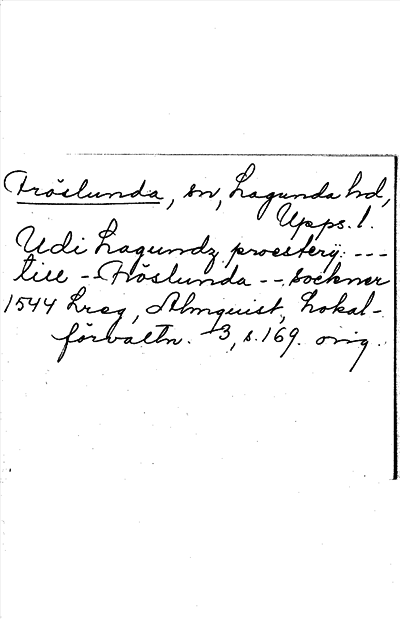 Fröslunda, sn, Lagunda hd,
Upps. l.
Udi Lagundz proesterij. ---
till -- Fröslunda -- sockner
1544 Lreg, Almquist, Lokal-
förvaltn. 3, s. 169. orig.